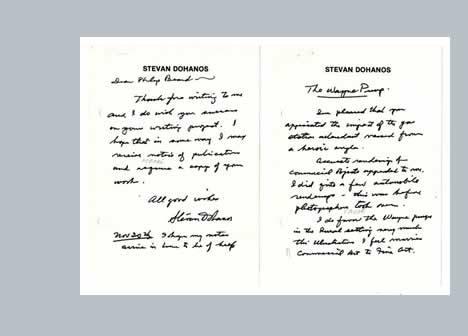 STEVAN DOHANOS
Dear Philip Beard
Thank for writing to me
and I do wish you success
on your writing project. I
hope that in some way I may
receive notice of publication
and acquire a copy of your
work.
All good wishes
Stevan Dohanos
Nov 20th I hope my notes
arrive in time to be of help
STEVAN DOHANOS
The Wayne Pump.
I'm pleased that you
appreciated the impact of the gas
station attendant viewed from
a heroic angle.
Accurate rendering of
commercial objects appealed to me.
I did quite a few automobile
renderings - this was before
photographers took over.
I do favor the Wayne pumps
in the Rural setting very much
this illustration I feel marries
Commercial Art to Fine Art.